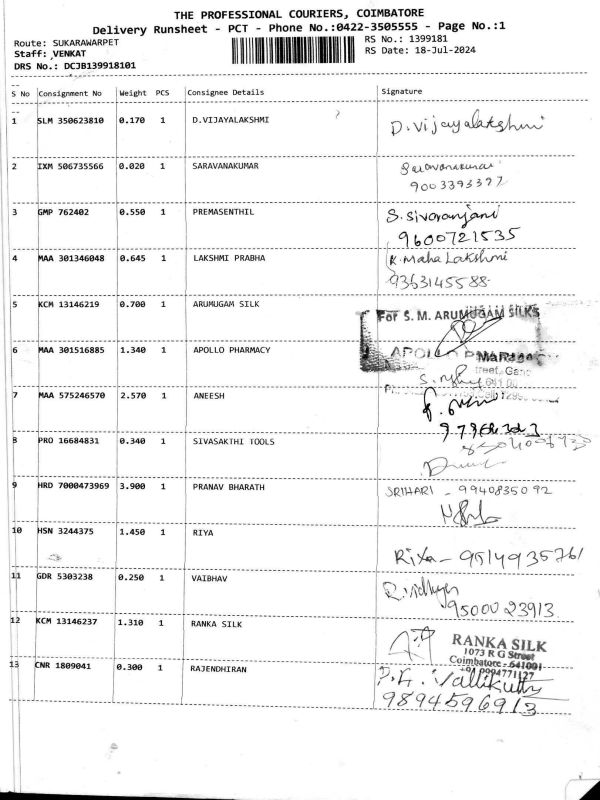 THE PROFESSIONAL COURIERS, COIMBATORE
Delivery Runsheet - PCT - Phone No.:0422-3505555 - Page No.:1
Route: SUKARAWARPET
Staff: VENKAT
DRS No.: DCJB139918101
RS No.: 1399181
RS Date: 18-Jul-2024
S No Consignment No Weight PCS Consignee Details Signature
1 SLM 350623810 0.170 1 D.VIJAYALAKSHMI D.Vijayalakshmi
2 IXM 506735566 0.020 1 SARAVANAKUMAR Saravanakumar
9003393397
3 GMP 762402 0.550 1 PREMASENTHIL S.Sivaranjani
9600721535
4 MAA 301346048 0.645 1 LAKSHMI PRABHA K.Maha Lakshmi
9363145588
5 KCM 13146219 0.700 1 ARUMUGAM SILK For S. M. ARUMUGAM SILKS
6 MAA 301516885 1.340 1 APOLLO PHARMACY APOLLO
7 MAA 575246570 2.570 1 ANEESH
8 PRO 16684831 0.340 1 SIVASAKTHI TOOLS
9 HRD 7000473969 3.900 1 PRANAV BHARATH SRIHARI - 9940835092
10 HSN 3244375 1.450 1 RIYA Riya - 9514935761
11 GDR 5303238 0.250 1 VAIBHAV R.vidhya
9500023913
12 KCM 13146237 1.310 1 RANKA SILK RANKA SILK
1073 R G Street
Coimbatore - 641001
+91 9994771127
13 CNR 1809041 0.300 1 RAJENDHIRAN Vallikutty
9894596913